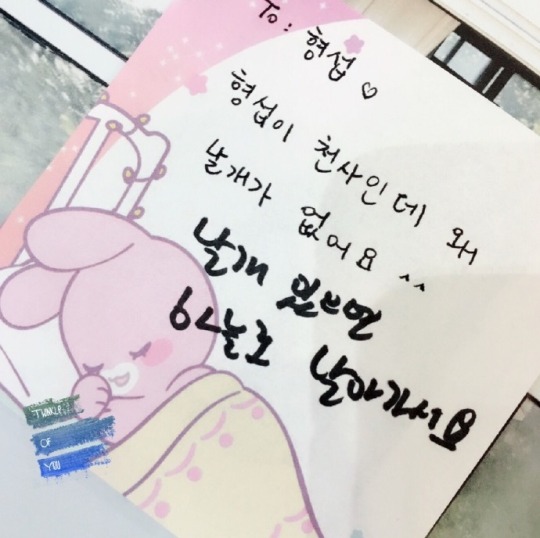 To: 형섭 ♡
형섭이 천사인데 왜
날개가 없어요 ^^
날개 있으면
하늘로 날아가서요
TWINKLE
OF
YOU